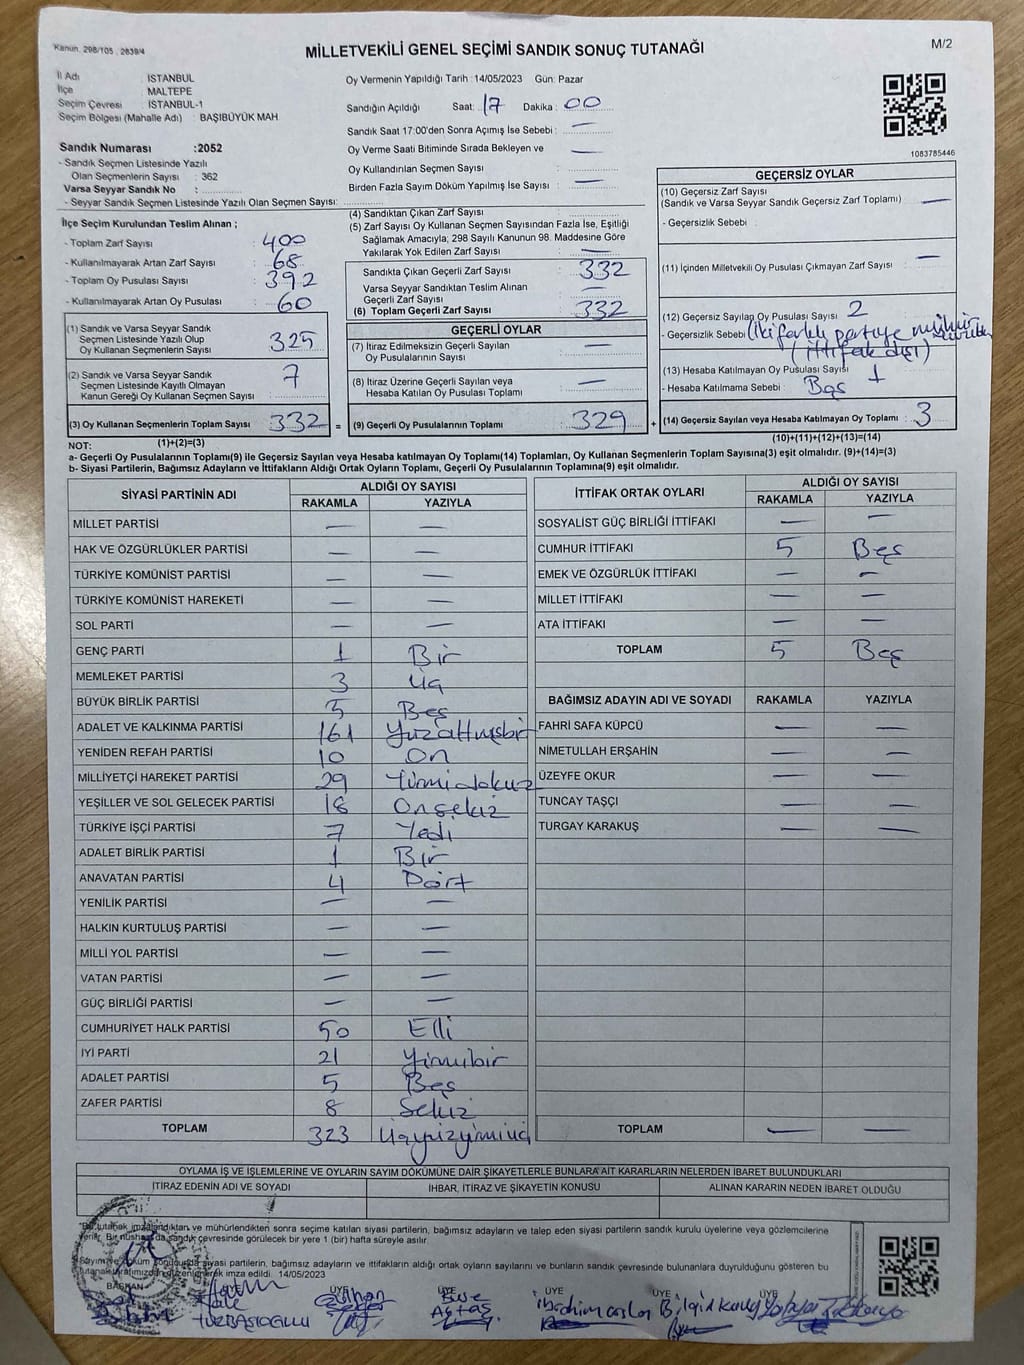 Kanun, 298/105, 2839/4
MİLLETVEKİLİ GENEL SEÇİMİ SANDIK SONUÇ TUTANAĞI
M/2
İl Adı : İSTANBUL
İlçe : MALTEPE
Seçim Çevresi : İSTANBUL-1
Seçim Bölgesi (Mahalle Adı) : BAŞIBÜYÜK MAH
Sandık Numarası :2052
- Sandık Seçmen Listesinde Yazılı
Olan Seçmenlerin Sayısı : 362
Varsa Seyyar Sandık No :
- Seyyar Sandık Seçmen Listesinde Yazılı Olan Seçmen Sayısı:
Oy Vermenin Yapıldığı Tarih :14/05/2023 Gün: Pazar
Sandığın Açıldığı Saat: 17 Dakika : 00
Sandık Saat 17:00'den Sonra Açımış İse Sebebi : —
Oy Verme Saati Bitiminde Sırada Bekleyen ve
Oy Kullandırılan Seçmen Sayısı —
Birden Fazla Sayım Döküm Yapılmış İse Sayısı : —
1083785446
İlçe Seçim Kurulundan Teslim Alınan ;
- Toplam Zarf Sayısı : 400
- Kullanılmayarak Artan Zarf Sayısı : 68
- Toplam Oy Pusulası Sayısı : 392
- Kullanılmayarak Artan Oy Pusulası : 60
(1) Sandık ve Varsa Seyyar Sandık
Seçmen Listesinde Yazılı Olup
Oy Kullanan Seçmenlerin Sayısı : 325
(2) Sandık ve Varsa Seyyar Sandık
Seçmen Listesinde Kayıtlı Olmayan
Kanun Gereği Oy Kullanan Seçmen Sayısı : 7
(3) Oy Kullanan Seçmenlerin Toplam Sayısı : 332 =
(1)+(2)=(3)
(4) Sandıktan Çıkan Zarf Sayısı :
(5) Zarf Sayısı Oy Kullanan Seçmen Sayısından Fazla İse, Eşitliği
Sağlamak Amacıyla; 298 Sayılı Kanunun 98. Maddesine Göre
Yakılarak Yok Edilen Zarf Sayısı : —
Sandıkta Çıkan Geçerli Zarf Sayısı : 332
Varsa Seyyar Sandıktan Teslim Alınan
Geçerli Zarf Sayısı : —
(6) Toplam Geçerli Zarf Sayısı : 332
GEÇERLİ OYLAR
(7) İtiraz Edilmeksizin Geçerli Sayılan
Oy Pusulalarının Sayısı : —
(8) İtiraz Üzerine Geçerli Sayılan veya
Hesaba Katılan Oy Pusulası Toplamı : —
(9) Geçerli Oy Pusulalarının Toplamı : 329 +
GEÇERSİZ OYLAR
(10) Geçersiz Zarf Sayısı
(Sandık ve Varsa Seyyar Sandık Geçersiz Zarf Toplamı) : —
- Geçersizlik Sebebi :
(11) İçinden Milletvekili Oy Pusulası Çıkmayan Zarf Sayısı : —
(12) Geçersiz Sayılan Oy Pusulası Sayısı : 2
- Geçersizlik Sebebi (İki farklı partiye mühür
(İttifak dışı)
(13) Hesaba Katılmayan Oy Pusulası Sayısı : 1
- Hesaba Katılmama Sebebi : Boş
(14) Geçersiz Sayılan veya Hesaba Katılmayan Oy Toplamı : 3
(10)+(11)+(12)+(13)=(14)
NOT:
a- Geçerli Oy Pusulalarının Toplamı(9) ile Geçersiz Sayılan veya Hesaba katılmayan Oy Toplamı(14) Toplamları, Oy Kullanan Seçmenlerin Toplam Sayısına(3) eşit olmalıdır. (9)+(14)=(3)
b- Siyasi Partilerin, Bağımsız Adayların ve İttifakların Aldığı Ortak Oyların Toplamı, Geçerli Oy Pusulalarının Toplamına(9) eşit olmalıdır.
SİYASİ PARTİNİN ADI ALDIĞI OY SAYISI
RAKAMLA YAZIYLA
MİLLET PARTİSİ — —
HAK VE ÖZGÜRLÜKLER PARTİSİ — —
TÜRKİYE KOMÜNİST PARTİSİ — —
TÜRKİYE KOMÜNİST HAREKETİ — —
SOL PARTİ — —
GENÇ PARTİ 1 Bir
MEMLEKET PARTİSİ 3 Üç
BÜYÜK BİRLİK PARTİSİ 5 Beş
ADALET VE KALKINMA PARTİSİ 161 Yüzaltmışbir
YENİDEN REFAH PARTİSİ 10 On
MİLLİYETÇİ HAREKET PARTİSİ 29 Yirmidokuz
YEŞİLLER VE SOL GELECEK PARTİSİ 18 Onsekiz
TÜRKİYE İŞÇİ PARTİSİ 7 Yedi
ADALET BİRLİK PARTİSİ 1 Bir
ANAVATAN PARTİSİ 4 Dört
YENİLİK PARTİSİ — —
HALKIN KURTULUŞ PARTİSİ — —
MİLLİ YOL PARTİSİ — —
VATAN PARTİSİ — —
GÜÇ BİRLİĞİ PARTİSİ — —
CUMHURİYET HALK PARTİSİ 50 Elli
İYİ PARTİ 21 Yirmibir
ADALET PARTİSİ 5 Beş
ZAFER PARTİSİ 8 Sekiz
TOPLAM 323 Üçyüzyirmiüç
İTTİFAK ORTAK OYLARI ALDIĞI OY SAYISI
RAKAMLA YAZIYLA
SOSYALİST GÜÇ BİRLİĞİ İTTİFAKI — —
CUMHUR İTTİFAKI 5 Beş
EMEK VE ÖZGÜRLÜK İTTİFAKI — —
MİLLET İTTİFAKI — —
ATA İTTİFAKI — —
TOPLAM 5 Beş
BAĞIMSIZ ADAYIN ADI VE SOYADI RAKAMLA YAZIYLA
FAHRİ SAFA KÜPCÜ — —
NİMETULLAH ERŞAHİN — —
ÜZEYFE OKUR — —
TUNCAY TAŞÇI — —
TURGAY KARAKUŞ — —
TOPLAM — —
OYLAMA İŞ VE İŞLEMLERİNE VE OYLARIN SAYIM DÖKÜMÜNE DAİR ŞİKAYETLERLE BUNLARA AİT KARARLARIN NELERDEN İBARET BULUNDUKLARI
İTİRAZ EDENİN ADI VE SOYADI İHBAR, İTİRAZ VE ŞİKAYETİN KONUSU ALINAN KARARIN NEDEN İBARET OLDUĞU
"Bu tutanak imzalandıktan ve mühürlendikten sonra seçime katılan siyasi partilerin, bağımsız adayların ve talep eden siyasi partilerin sandık kurulu üyelerine veya gözlemcilerine
verilir. Bir nüshası da sandık çevresinde görülecek bir yere 1 (bir) hafta süreyle asılır.
Sayım ve döküm sonucunda siyasi partilerin, bağımsız adayların ve ittifakların aldığı ortak oyların sayılarını ve bunların sandık çevresinde bulunanlara duyrulduğunu gösteren bu
tutanak tarafımızdan düzenlenerek imza edildi. 14/05/2023
BAŞKAN ÜYE ÜYE ÜYE ÜYE ÜYE
Hale TÜZBAŞIOĞLU
Buse Aktaş
İbrahim aslan